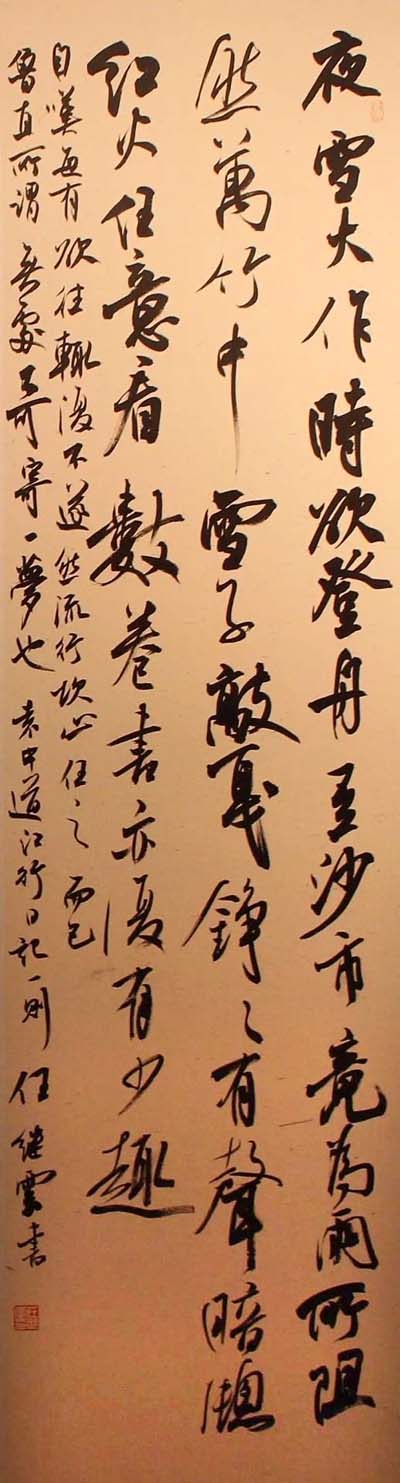 夜雪大作時欲登舟至沙市竟為雨所阻
然萬竹中雪子敲戛錚々有聲暗窗
紅火任意看數卷書亦復有少趣
自嘆每有欲往輒復不遂然流行坎止任之而已
魯直所謂無處不可寄一夢也 袁中道江行日記一則 任繼雲書